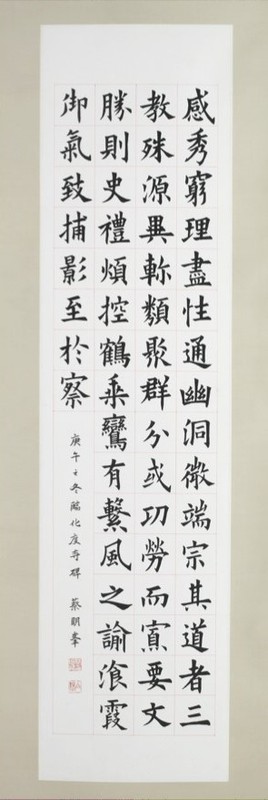 感秀窮理盡性通幽洞微端宗其道者三
教殊源異軫類聚群分或功勞而寡要文
勝則史禮煩控鶴乘鸞有繫風之諭飡霞
御氣致捕影至於察
庚午之冬臨化度寺碑 蔡明峯